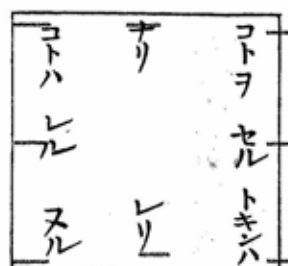 コトヲ セル トキンハ
ナリ レリ
コトハ レル ヌル